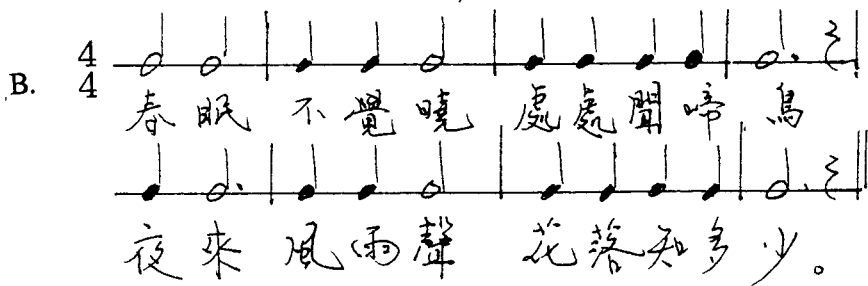 B. 4/4
春眠不覺曉處處聞啼鳥
夜來風雨聲花落知多少。